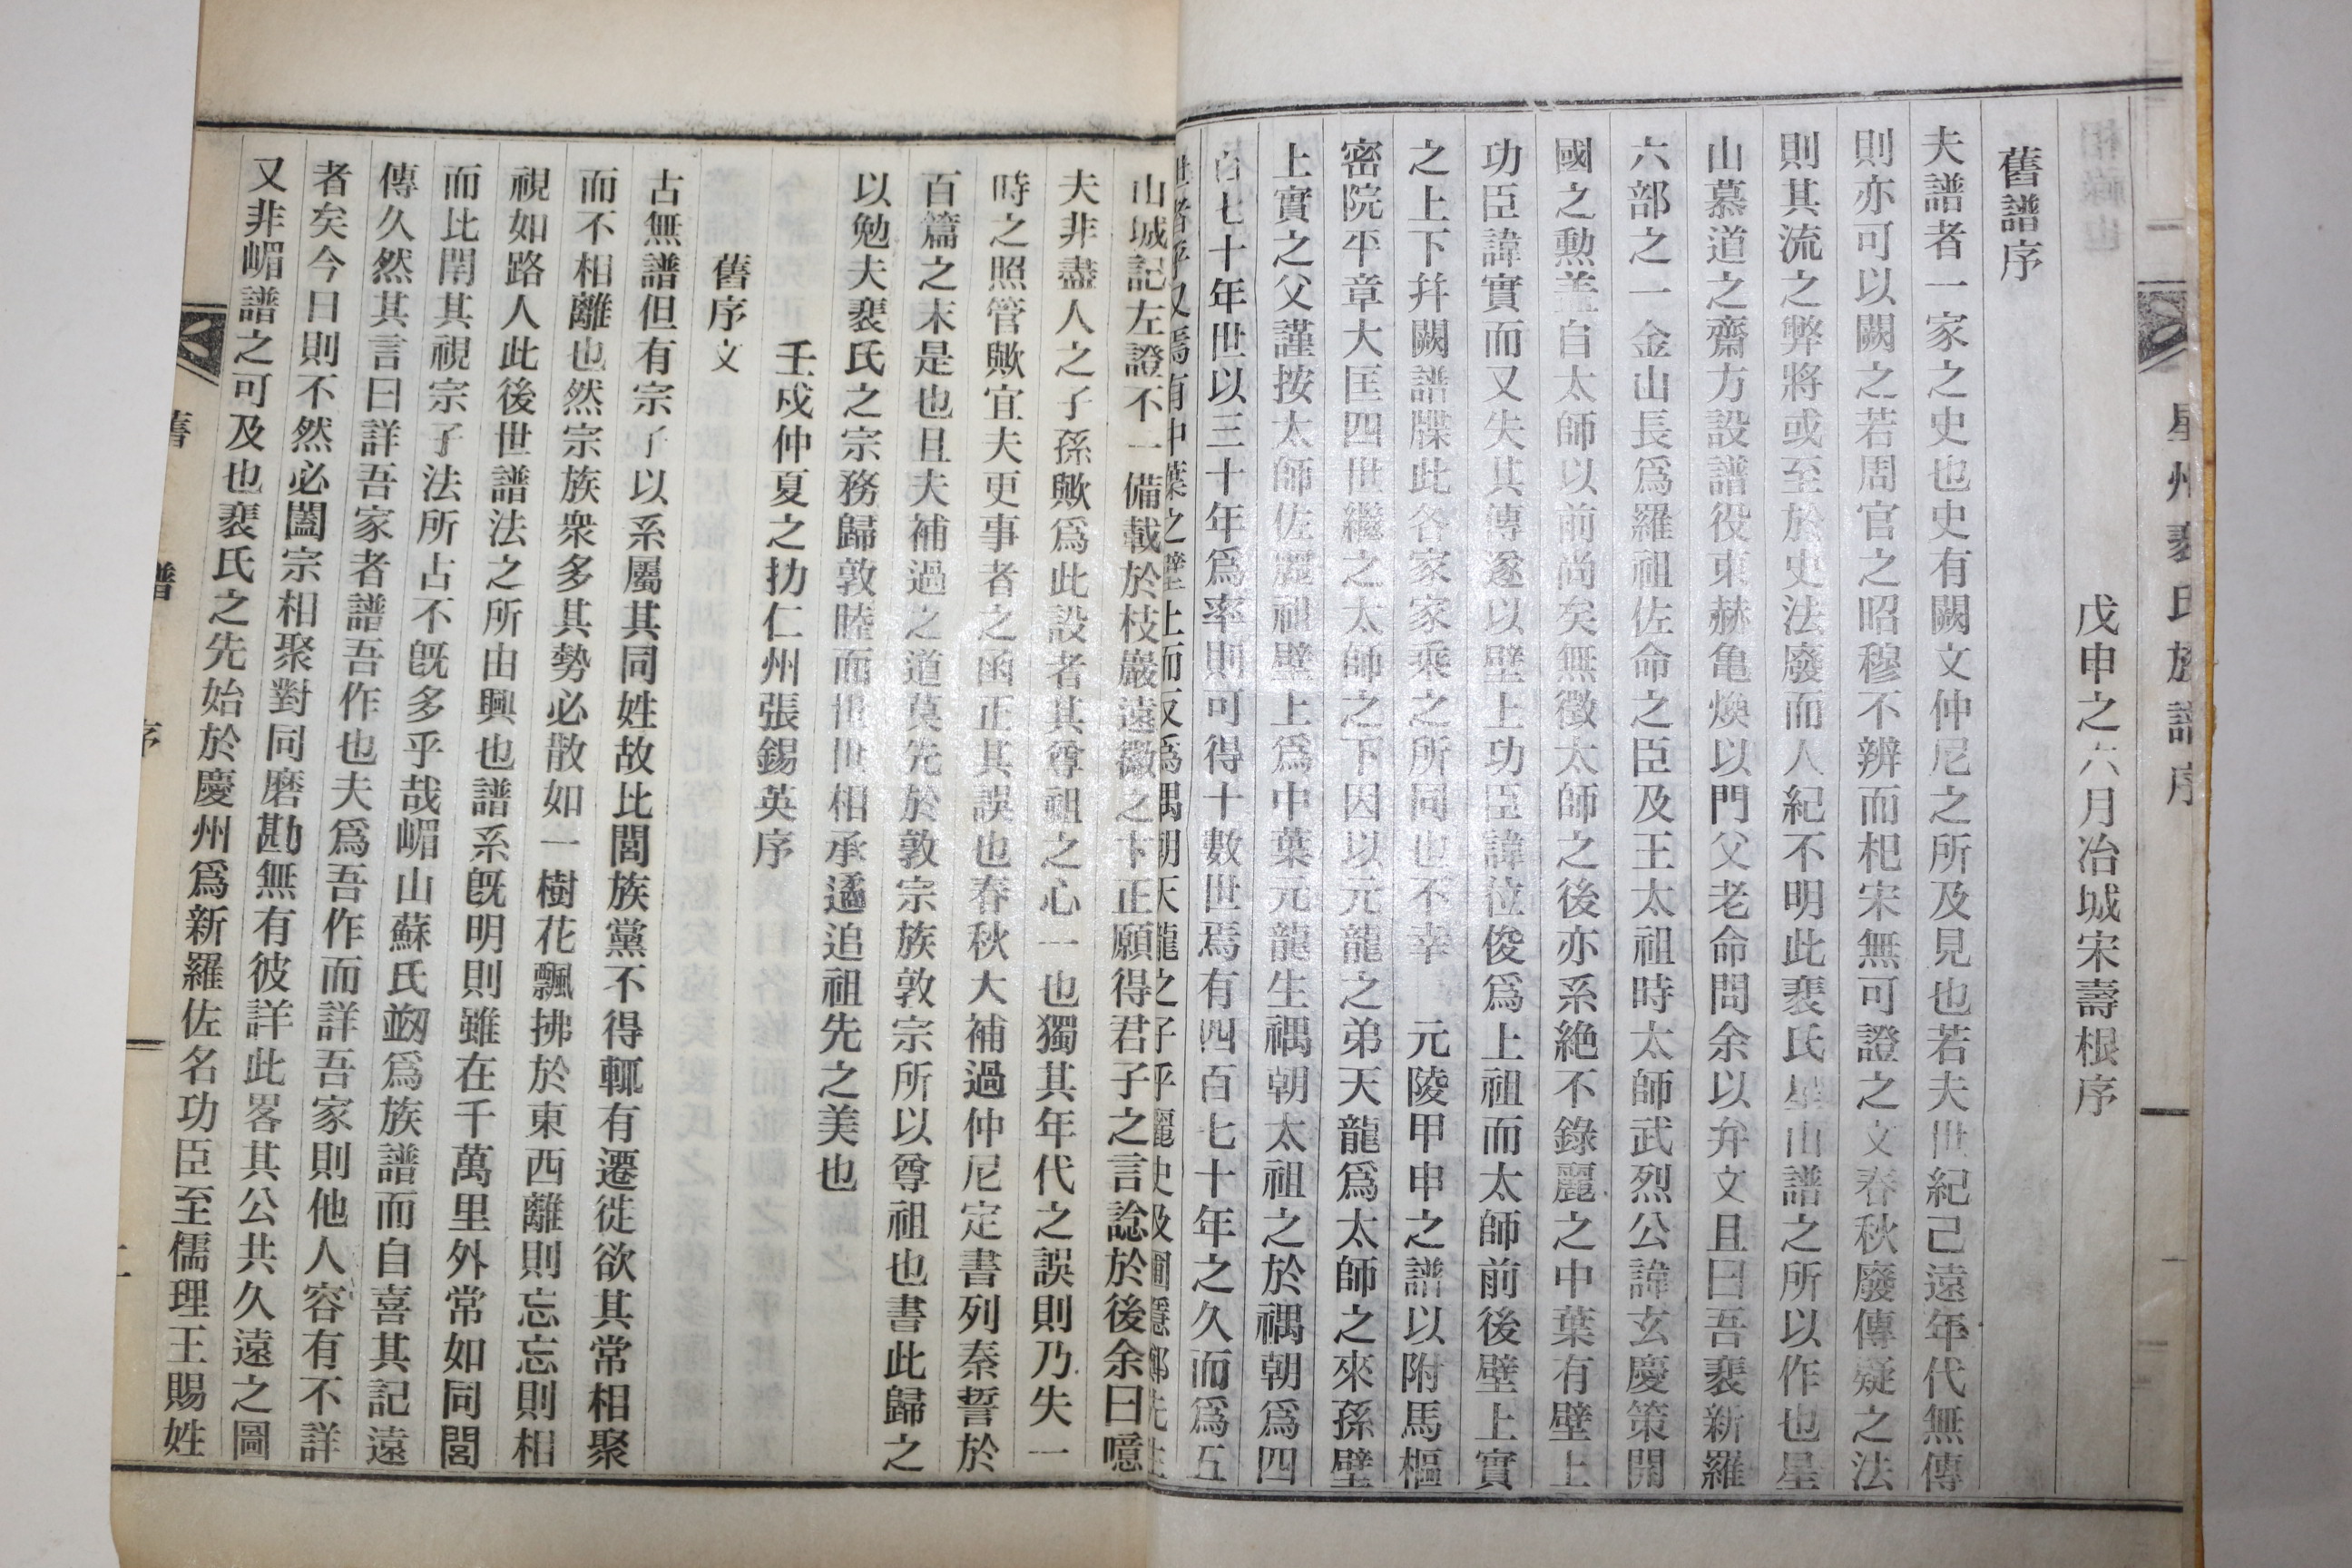 星州裵氏族譜序
戊申之六月冶城宋壽根序
舊譜序
夫譜者一家之史也史有闕文仲尼之所及見也若夫世紀己遠年代無傳
則亦可以闕之若周官之昭穆不辨而杞宋無可證之文春秋廢傳疑之法
則其流之弊將或至於史法廢而人紀不明此裵氏星山譜之所以作也星
山慕道之齋方設譜役東赫亀煥以門父老命問余以弁文且曰吾裵新羅
六部之一金山長爲羅祖佐命之臣及王太祖時太師武烈公諱玄慶策開
國之勲盖自太師以前尚矣無徵太師之後亦系絶不錄麗之中葉有壁上
功臣諱實而又失其傳遂以壁上功臣諱位俊爲上祖而太師前後壁上實
之上下幷闕譜牒此各家家乘之所同也不幸 元陵甲申之譜以附馬樞
密院平章大匡四世繼之太師之下因以元龍之弟天龍爲太師之來孫壁
上實之父謹按太師佐麗祖壁上爲中葉元龍生禑朝太祖之於禑朝爲四
百七十年世以三十年爲率則可得十數世焉有四百七十年之久而爲五
世者乎又焉有中葉之壁上而反爲禑朝天龍之子乎麗史及圃隱鄭先生
山城記左證不一備載於枝巖遠徵之卞正願得君子之言諗於後余曰噫
夫非盡人之子孫歟爲此設者其尊祖之心一也獨其年代之誤則乃失一
時之照管歟宜夫更事者之函正其誤也春秋大補過仲尼定書列秦誓於
百篇之末是也且夫補過之道莫先於敦宗族敦宗所以尊祖也書此歸之
以勉夫裵氏之宗務歸敦睦而世世相承遹追祖先之美也
壬戌仲夏之扐仁州張錫英序
舊序文
古無譜但有宗子以系屬其同姓故比閭族黨不得輒有遷徙欲其常相聚
而不相離也然宗族衆多其勢必散如一樹花飄拂於東西離則忘忘則相
視如路人此後世譜法之所由興也譜系旣明則雖在千萬里外常如同閭
而比閈其視宗子法所占不旣多乎哉嵋山蘇氏刱爲族譜而自喜其記遠
傳久然其言曰詳吾家者譜吾作也夫爲吾作而詳吾家則他人容有不詳
者矣今日則不然必闔宗相聚對同磨勘無有彼詳此畧其公共久遠之圖
又非嵋譜之可及也裵氏之先始於慶州爲新羅佐名功臣至儒理王賜姓
舊譜序
二